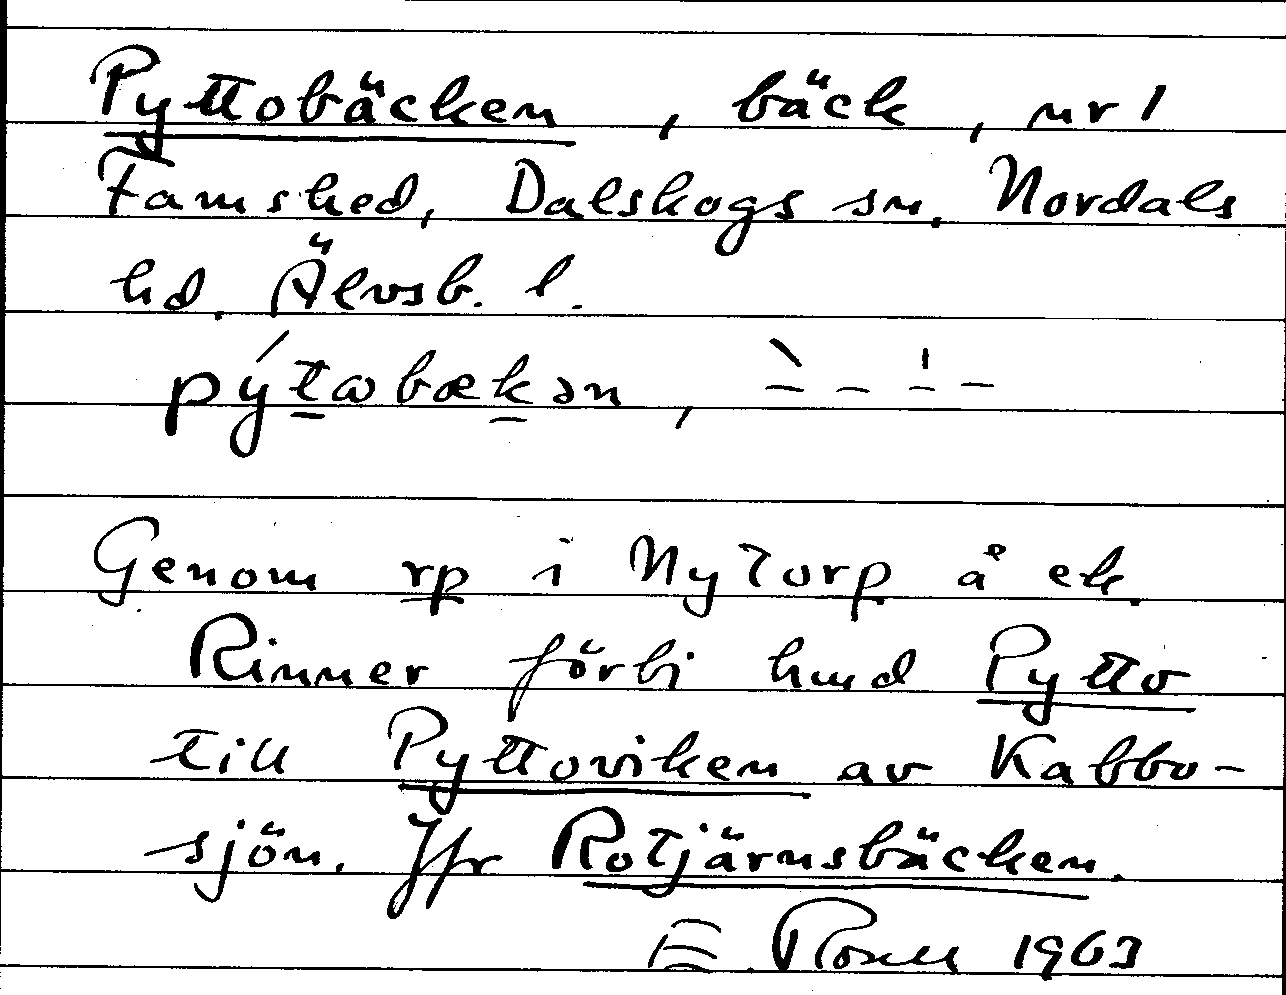 Pyttobäcken, bäck, nr 1
Famshed, Dalskogs sn. Nordals
hd. Älvsb. l.
pýtωbækən,
Genom rp i Nytorp å ek.
Rinner förbi hmd Pytto
till Pyttoviken av Kabbo-
sjön. Jfr Rotjärnsbäcken.
E. Rosell 1963